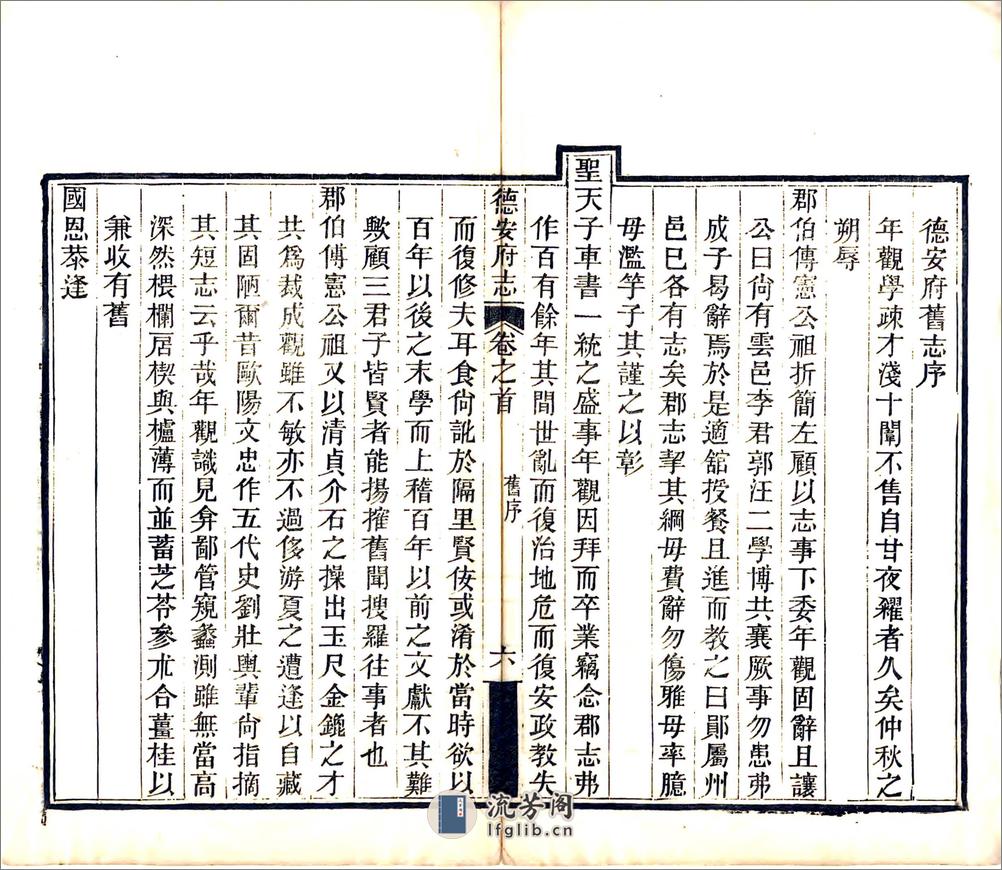 德安府舊志序
年觀學疎才淺十闈不售自甘夜糴者久矣仲秋之
朔辱
郡伯傅憲公祖折簡左顧以志事下委年觀固辭且讓
公曰尙有雲邑李君郭汪二學博共襄厥事勿患弗
成子曷辭焉於是適舘授餐且進而教之曰鄖屬州
邑已各有志矣郡志挈其綱毋費辭勿傷雅毋率臆
毋濫竽子其謹之以彰
聖天子車書一統之盛事年觀因拜而卒業竊念郡志弗
作百有餘年其間世亂而復治地危而復安政教失
德安府志 卷之首 舊序 六
而復修夫耳食尙訛於隔里賢佞或淆於當時欲以
百年以後之末學而上稽百年以前之文獻不其難
歟顧三君子皆賢者能揚搉舊聞搜羅往事者也
郡伯傅憲公祖又以清貞介石之操出玉尺金鎞之才
共爲裁成觀雖不敏亦不過侈游夏之遭逢以自藏
其固陋爾昔歐陽文忠作五代史劉壯輿輩尙指摘
其短志云乎哉年觀識見弇鄙管窺蠡測雖無當高
深然椳欄扂楔與櫨薄而並蓄芝苓參朮合薑桂以
兼收有舊
國恩忝逢
流芳阁
lfglib.cn